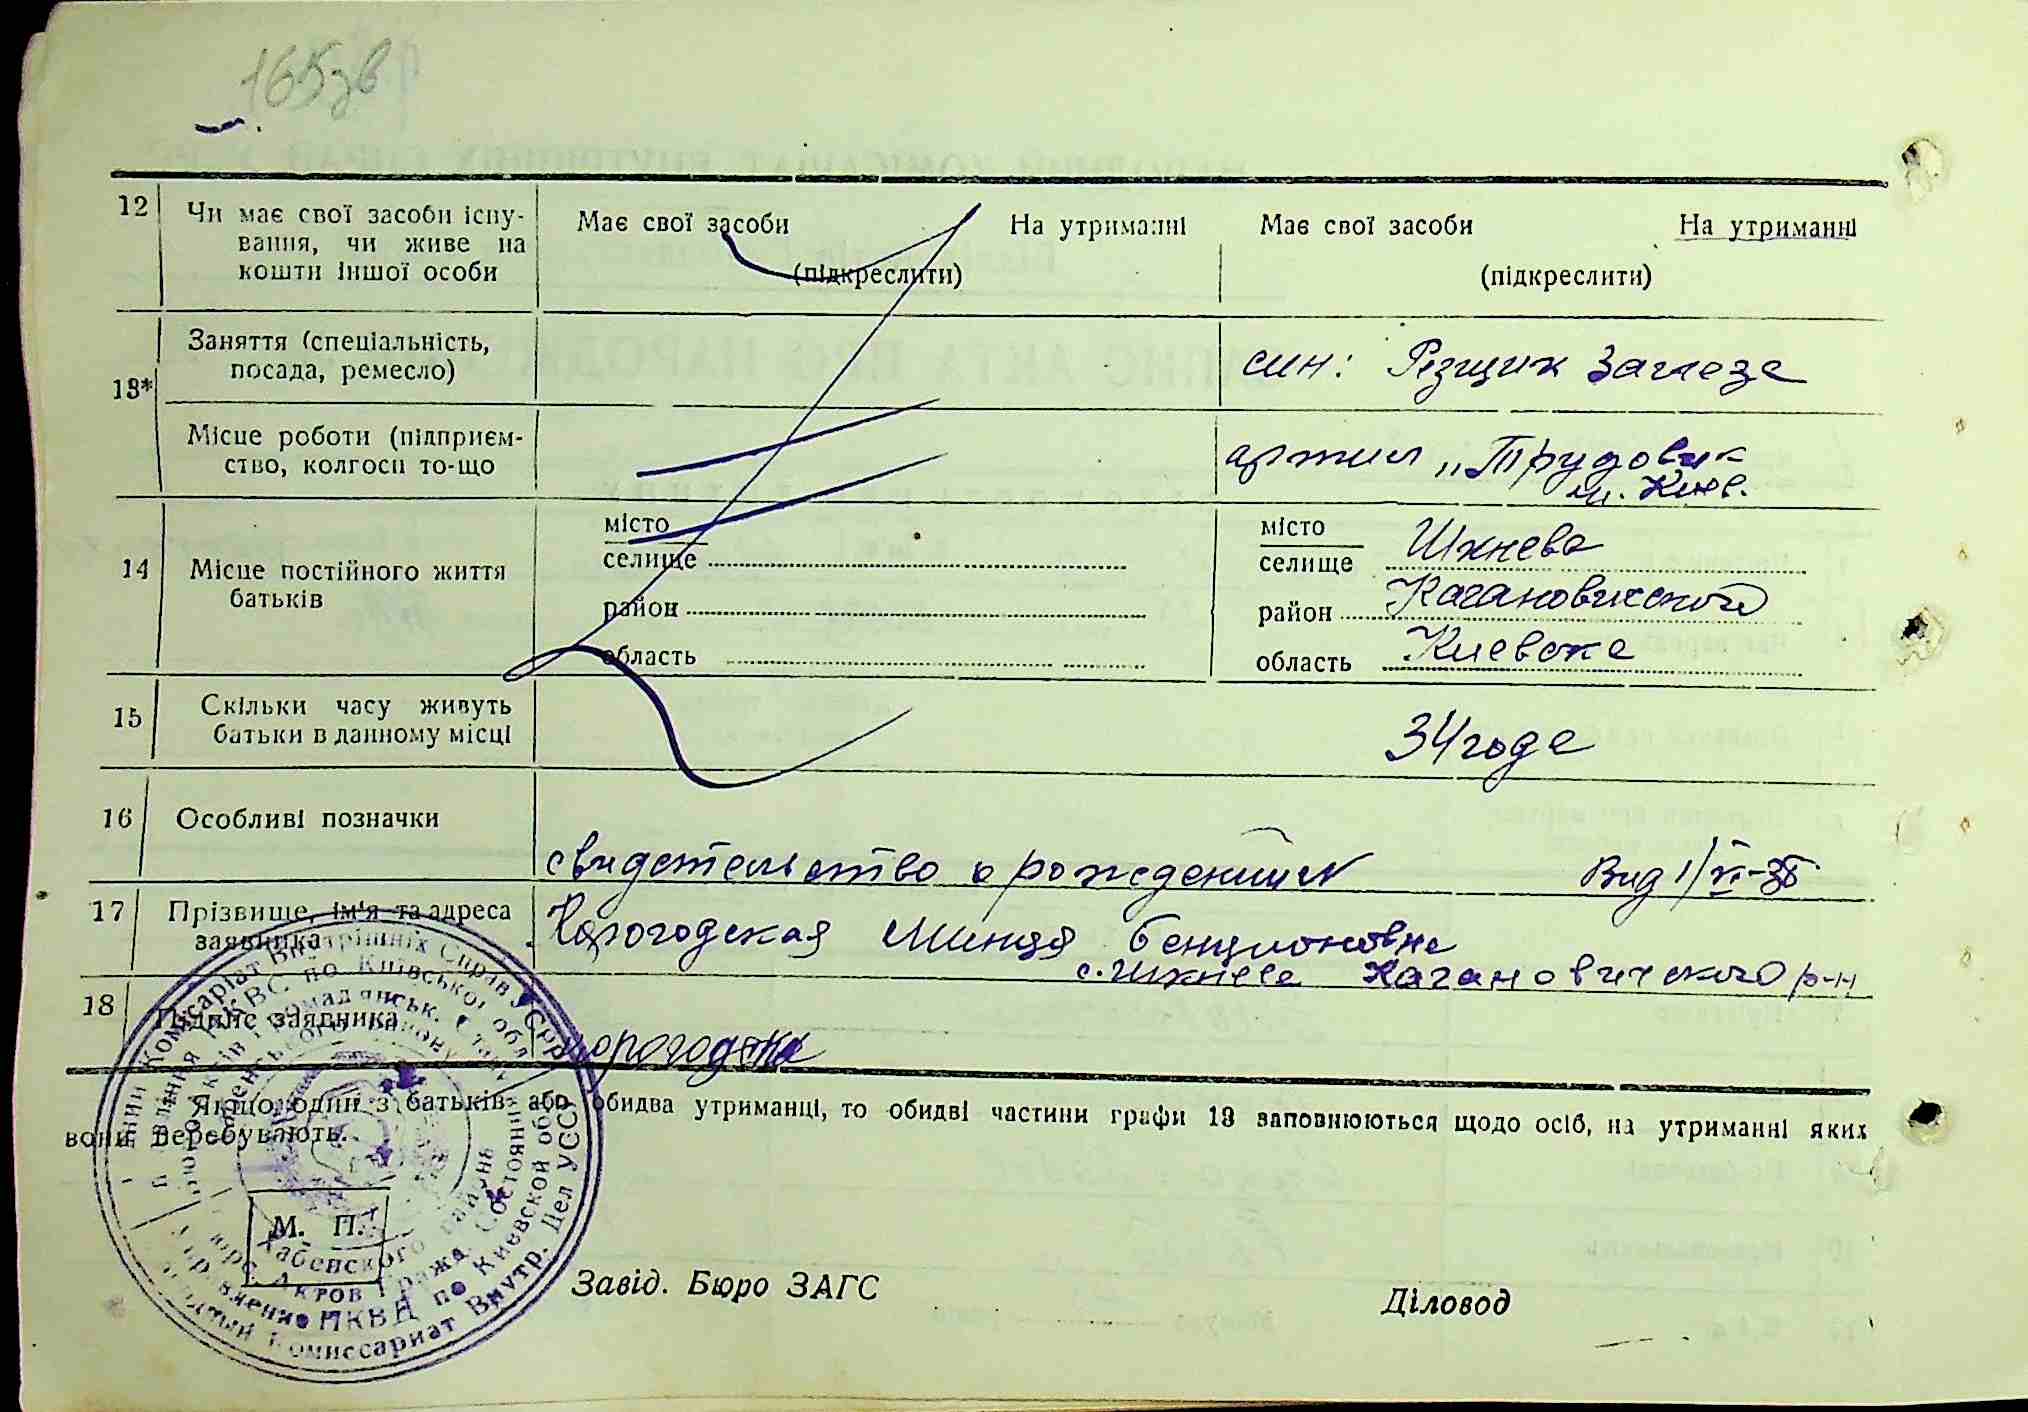 165зв
12 Чи має свої засоби існу-
вання, чи живе на
кошти іншої особи
Має свої засоби На утриманні
(підкреслити)
Має свої засоби На утриманні
(підкреслити)
13*
Заняття (спеціальність,
посада, ремесло)
син: Резщик Загнезе
Місце роботи (підприєм-
ство, колгосп то-що
артил „Трудовик
м. Киев.
14 Місце постійного життя
батьків
місто
селище
район
область
місто
селище Шкнева
район Кагановичского
область Киевске
15 Скільки часу живуть
батьки в данному місці
34 года
16 Особливі позначки
свидетельство о рождении Вид 1/VI-
17 Прізвище, ім'я та адреса
заявника
Карогодская Минця Бенционовна
с. Кагановичского р-н
18 Підпис заявника
Якщо один з батьків або обидва утриманці, то обидві частини графи 13 заповнюються щодо осіб, на утриманні яких
вони перебувають.
М. П.
Комісаріат Внутрішніх Справ УСРР
НКВС по Київській обл.
Хабенского
Актов Гражд. Состояния
Управление НКВД по Киевской обл.
Комиссариат Внутр. Дел УССР
Завід. Бюро ЗАГС
Діловод